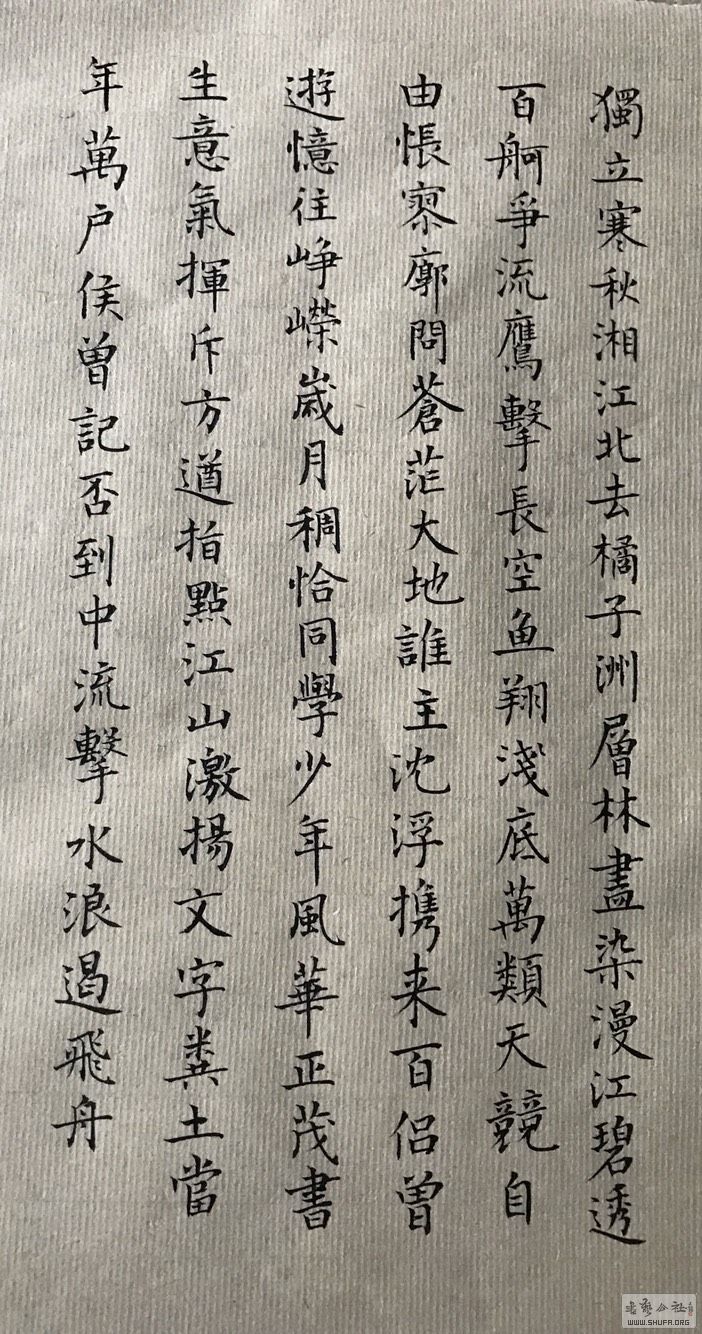 獨立寒秋湘江北去橘子洲層林盡染漫江碧透
百舸爭流鷹擊長空鱼翔淺底萬類天競自
由悵寥廓問蒼茫大地誰主沈浮携来百侣曾
遊憶往峥嶸歲月稠恰同學少年風華正茂書
生意氣揮斥方遒指點江山激揚文字糞土當
年萬户侯曾記否到中流擊水浪遏飛舟
WWW.SHUFA.ORG